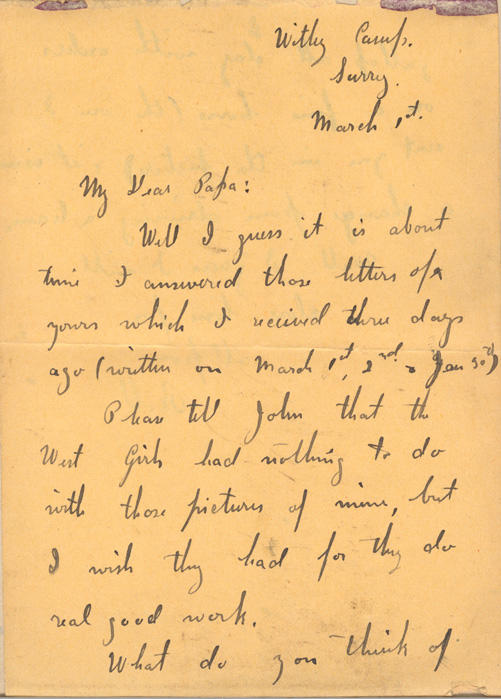 Witley Camp.
Surry.
March 1st.
My Dear Papa:
Well I guess it is about
time I answered those letters of
yours which I received three days
ago (written on March 1st, 2nd & Jan 30th)
Please tell John that the
West Girls had nothing to do
with those pictures of mine, but
I wish they had for they do
real good work.
What do you think of